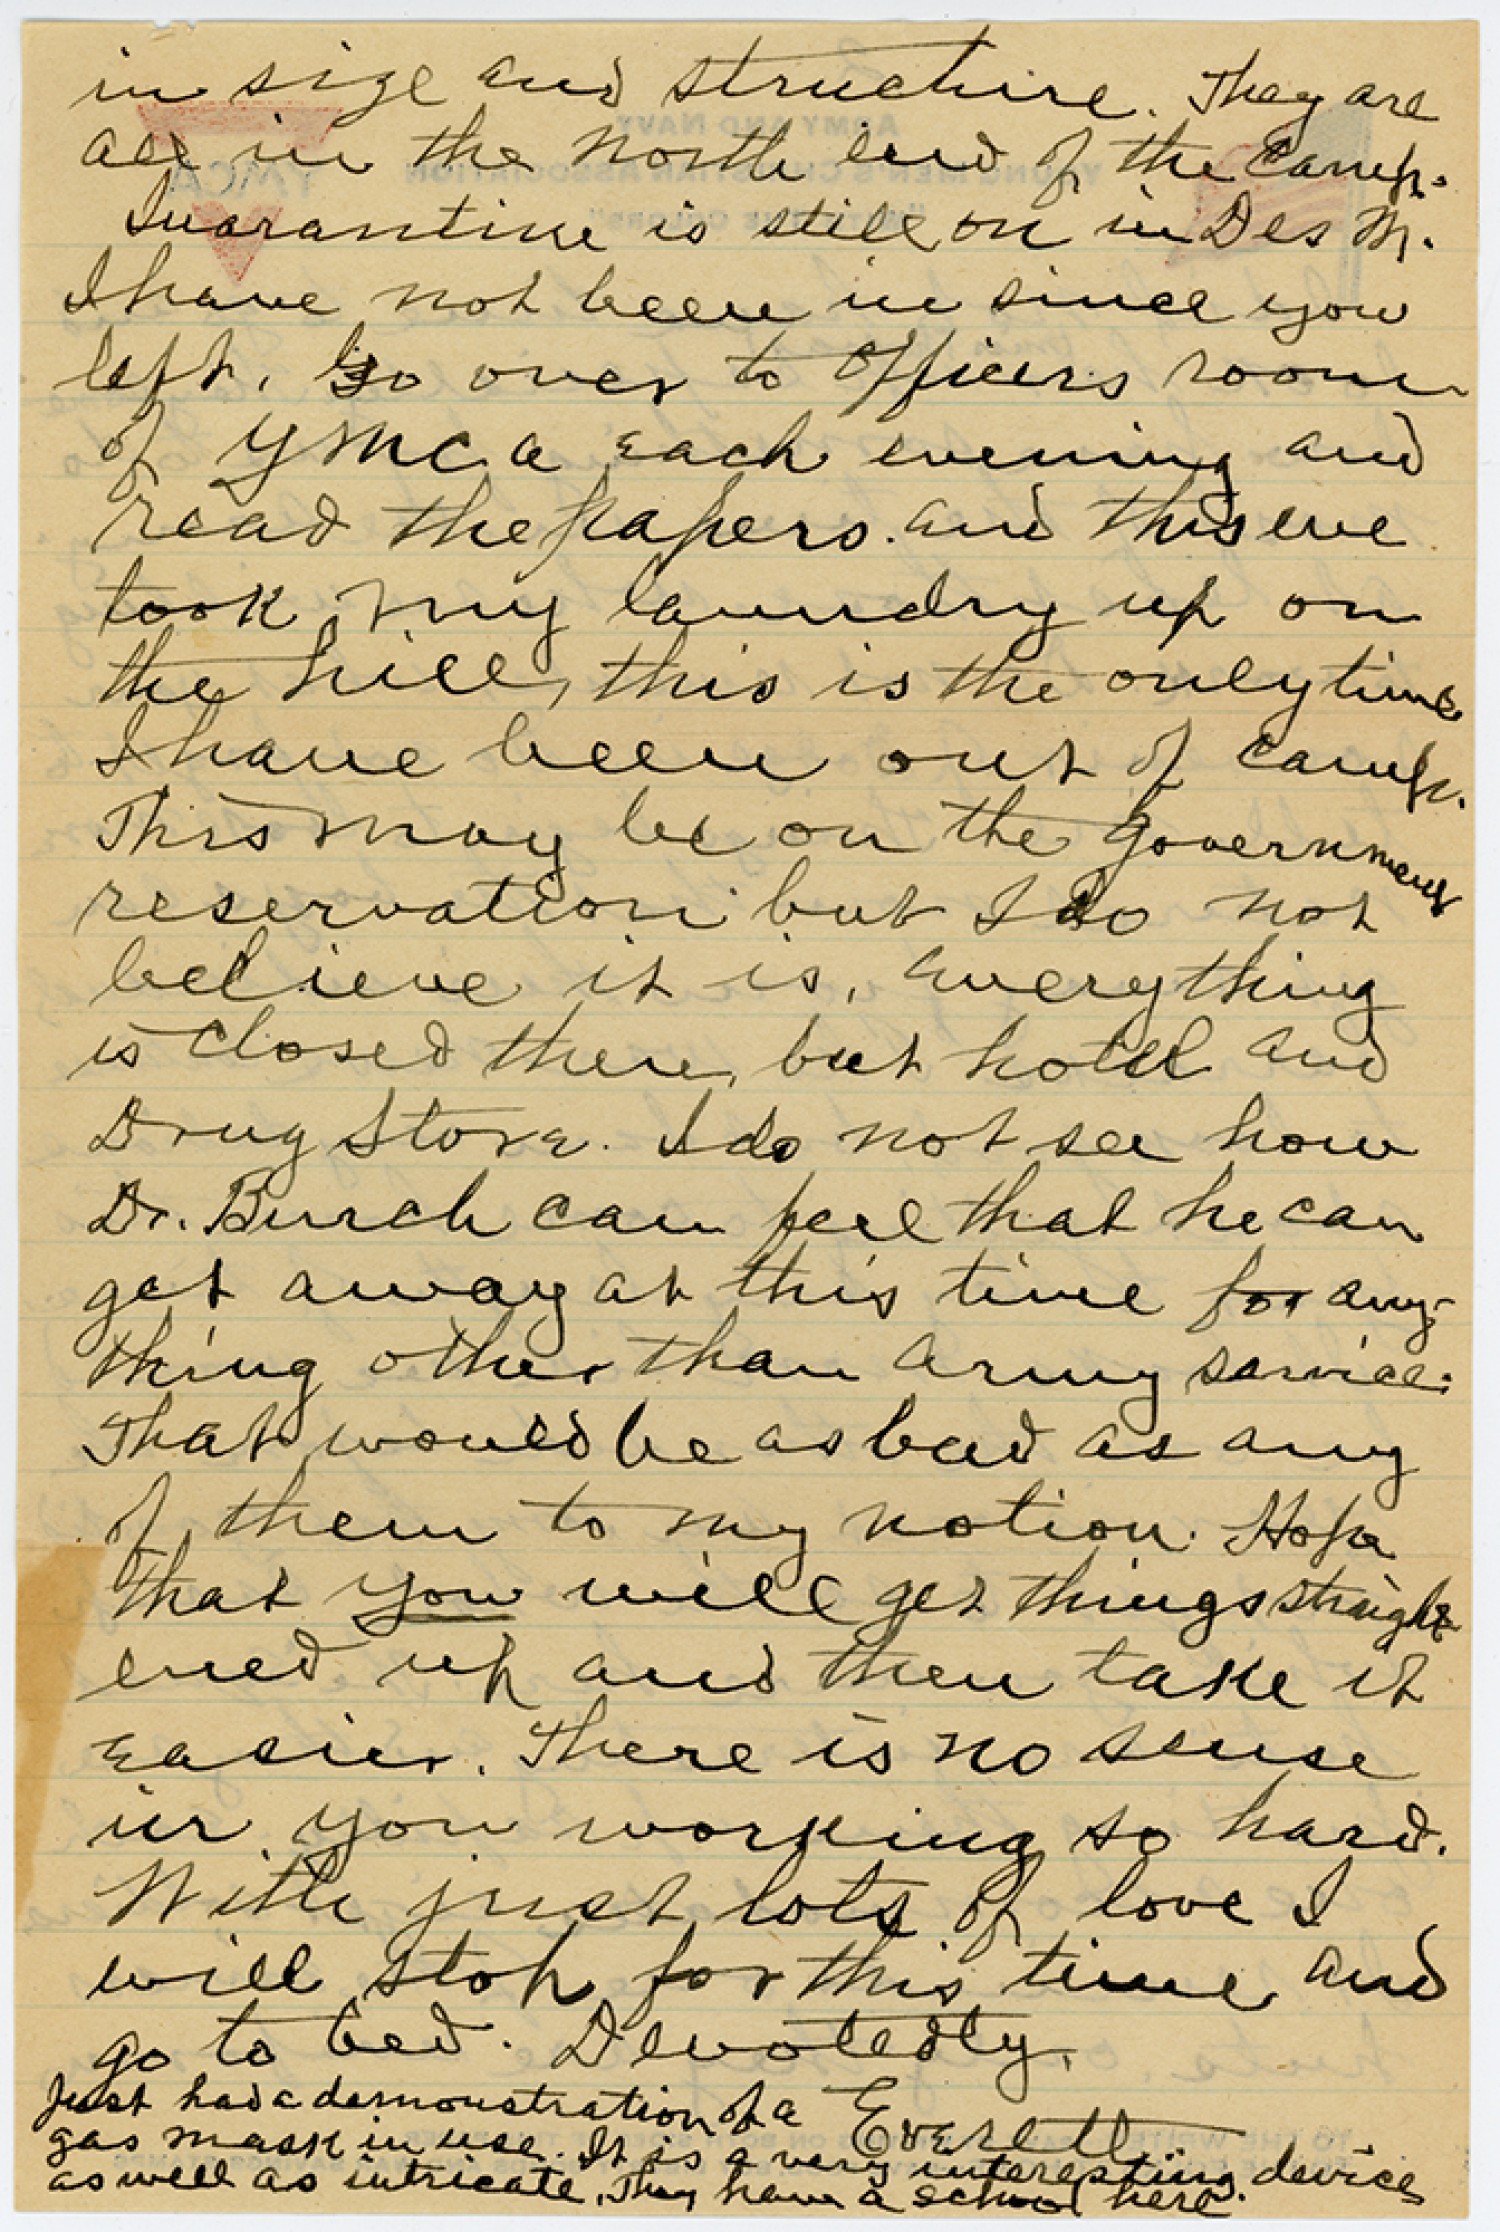 in size and structure. They are
all in the North end of the camp.
Quarantine is still on in Des M.
I have not been in since you
left. Go over to Officers room
of YMCA each evening and
read the papers. and this eve
took my laundry up on
the hill, this is the only time
I have been out of camp.
This may be on the government
reservation but I do not
believe it is. Everything
is closed there, but hotel and
Drug Store. I do not see how
Dr. Burch can feel that he can
get away at this time for any-
thing other than Army service.
That would be as bad as any
of them to my notion. Hope
that you will get things straight
ened up and then take it
easier. There is no sense
in you working so hard.
With just lots of love I
will stop for this time and
go to bed. Devotedly,
Everett
Just had a demonstration of a
gas mask in use. It is a very interesting device
as well as intricate. They have a school here.
ARMY AND NAVY
YOUNG MEN'S CHRISTIAN ASSOCIATION
"WITH THE COLORS"
YMCA